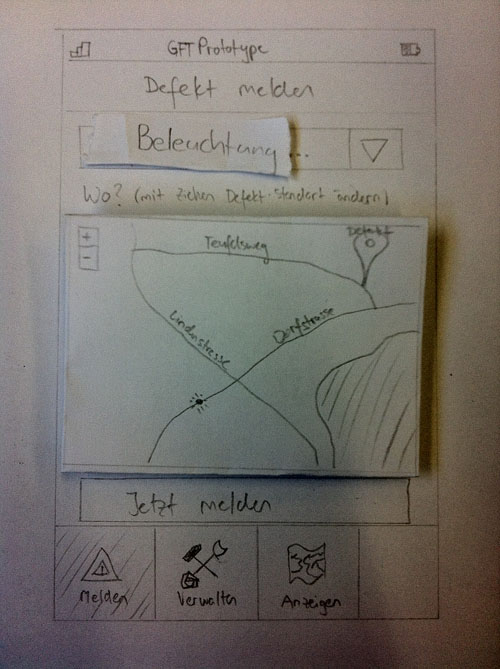 GFT Prototype
Defekt melden
Beleuchtung ...
Wo? (mit ziehen Defekt-standort ändern)
+
-
Defekt
Teufelsweg
Lindenstrasse
Dorfstrasse
Jetzt melden
!
Melden
Verwalten
Anzeigen